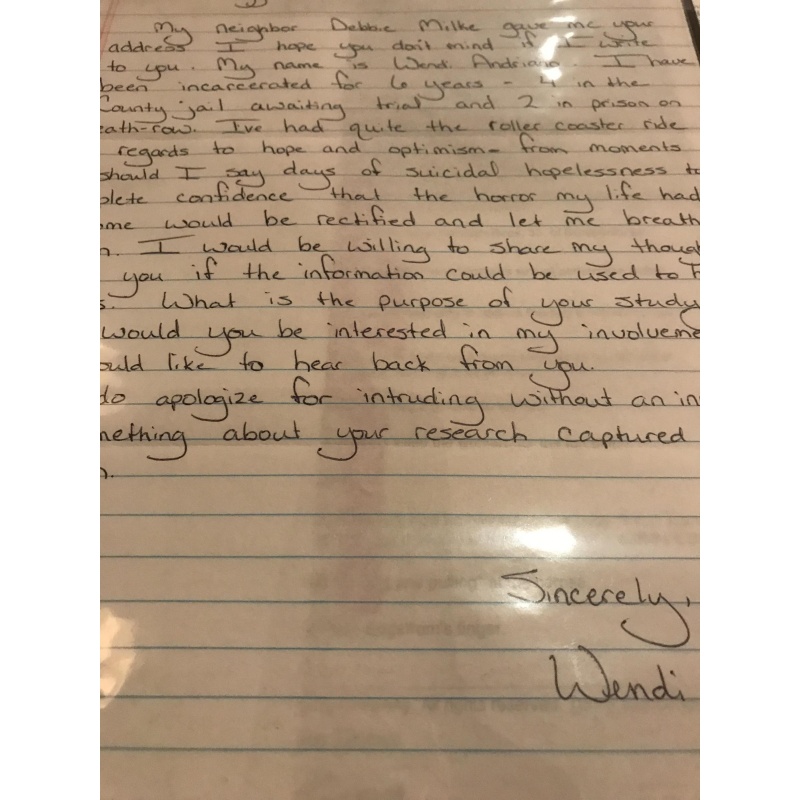 My neighbor Debbie Milke gave me your
address I hope you don't mind if I write
to you. My name is Wendi Andriano. I have
been incarcerated for 6 years - 4 in the
County jail awaiting trial and 2 in prison on
eath-row. Ive had quite the roller coaster ride
regards to hope and optimism- from moments
should I say days of suicidal hopelessness to
plete confidence that the horror my life had
ome would be rectified and let me breath
n. I would be willing to share my though
you if the information could be used to
s. What is the purpose of your study
would you be interested in my involveme
ould like to hear back from you.
do apologize for intruding without an in
mething about your research captured
n.
Sincerely,
Wendi